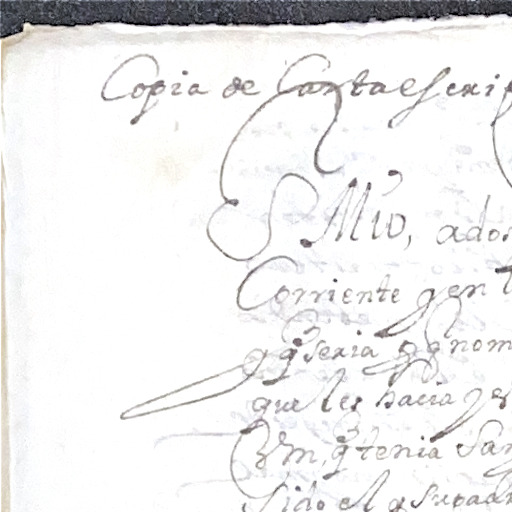 Copia de Carta escrip
S Mio, ados
Corriente y en l
y q seria y q nom
que les hacia y e
Vm, q tenia San
sido el q supadr